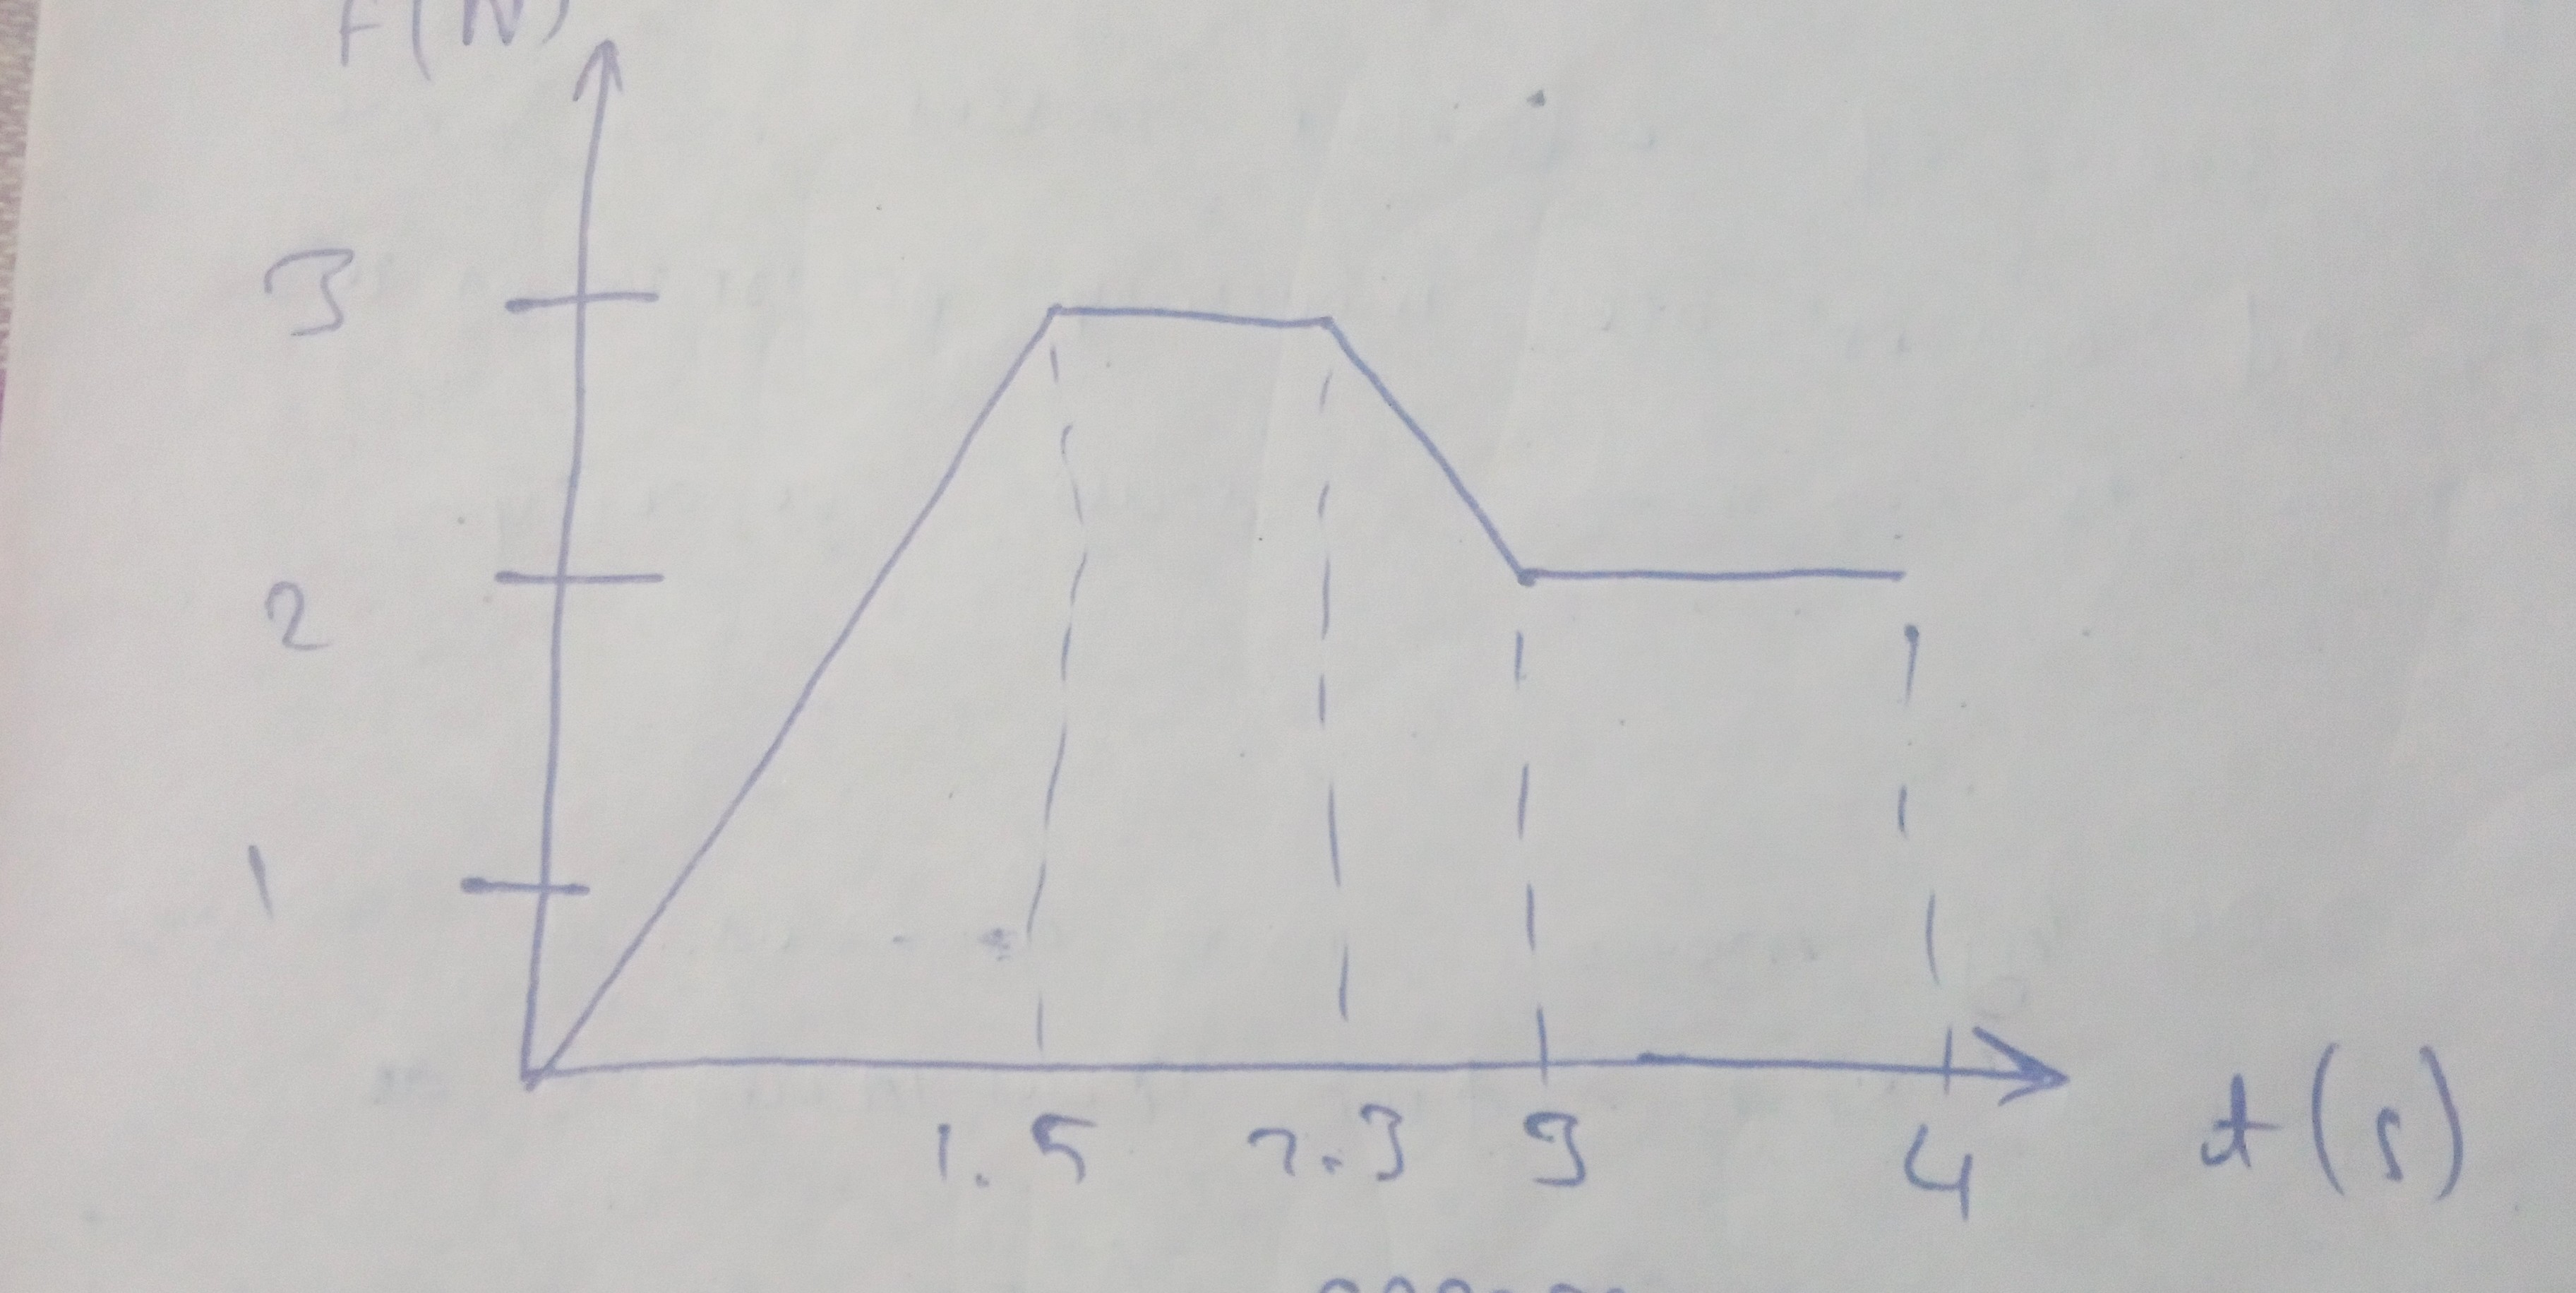 F(N)
3
2
1
1.5 2.3 3 4 t(s)